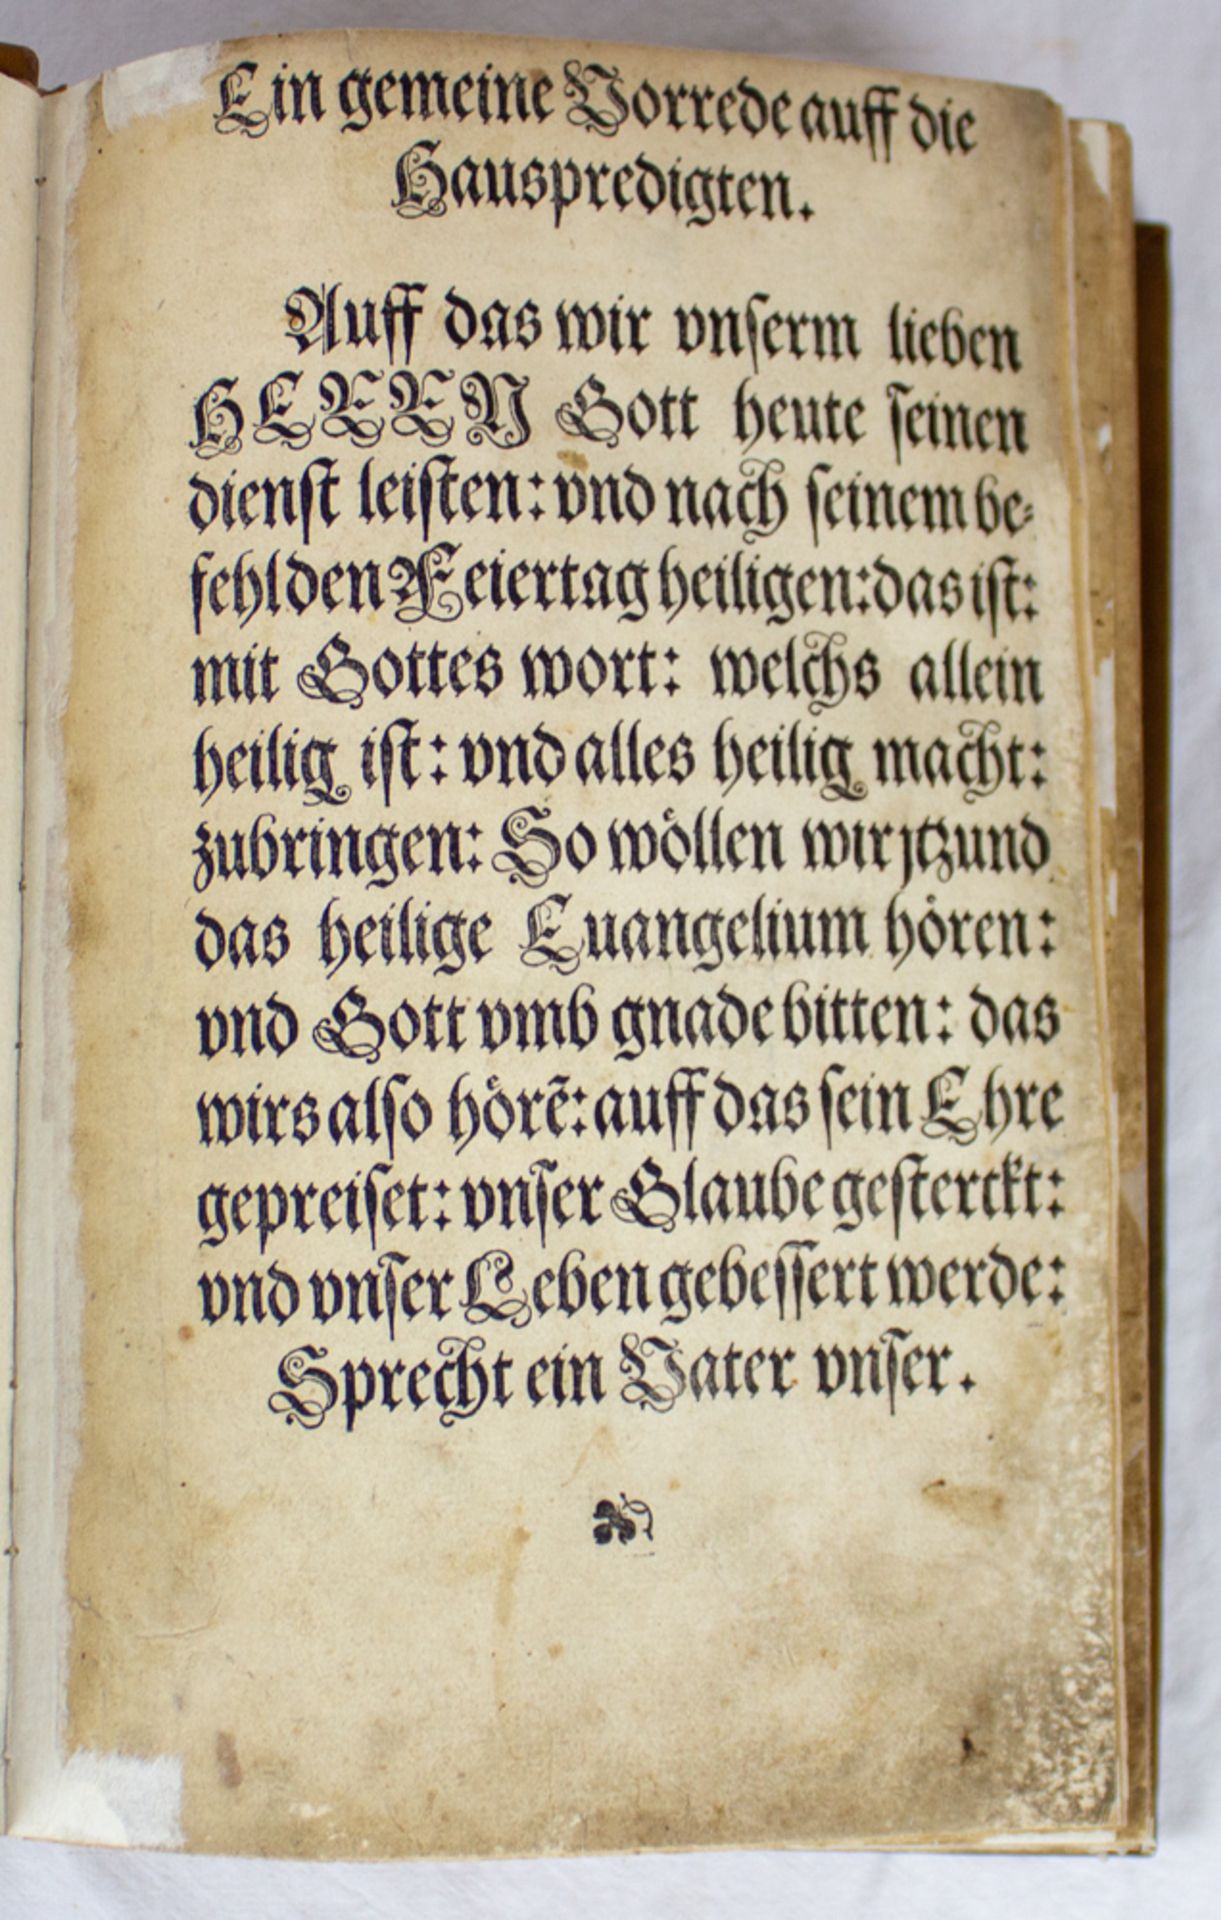 Ein gemeine Vorrede auff die
Hauspredigten.
Auff das wir vnſerm lieben
HERRN Gott heute ſeinen
dienſt leiſten: vnd nach ſeinem be⸗
fehl den Feiertag heiligen: das iſt:
mit Gottes wort: welchs allein
heilig iſt: vnd alles heilig macht:
zubringen: So wöllen wir jtzund
das heilige Euangelium hören:
vnd Gott vmb gnade bitten: das
wirs alſo hörẽ: auff das ſein Ehre
gepreiſet: vnſer Glaube geſterckt:
vnd vnſer Leben gebeſſert werde:
Sprecht ein Vater vnſer.